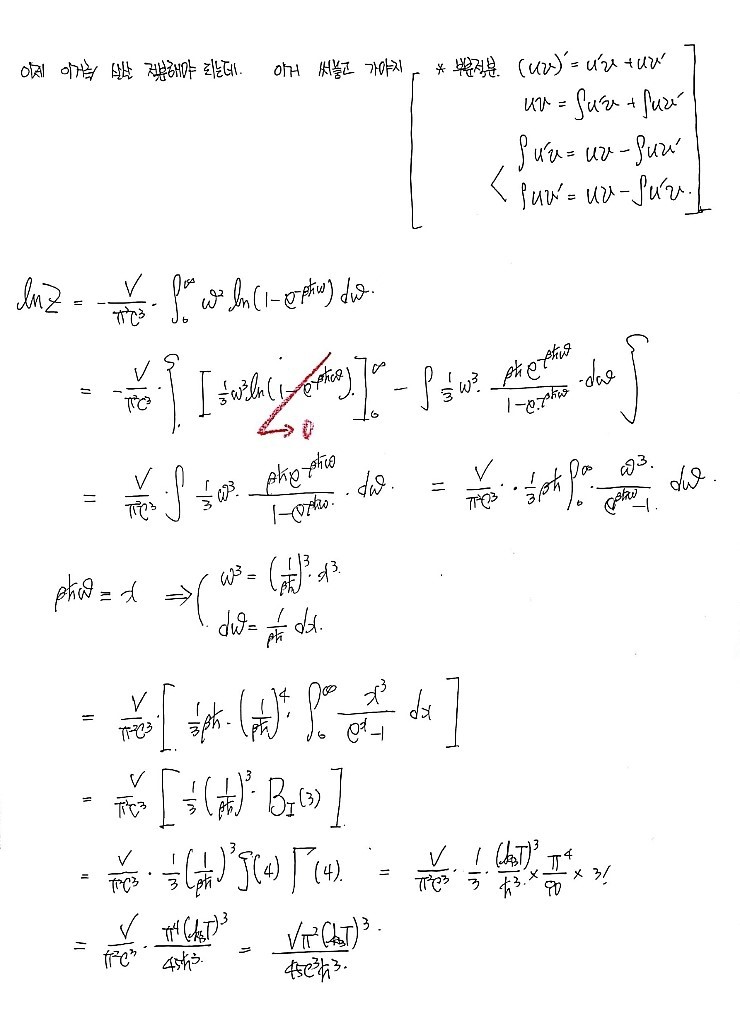 이제 이거를 싹싹 적분해야 되는데. 이거 써놓고 가야지
* 부분적분. (uv)′ = u′v + uv′
uv = ∫u′v + ∫uv′
∫u′v = uv − ∫uv′
∫uv′ = uv − ∫u′v.
lnZ = − V/π²c³ · ∫₀^∞ ω² ln(1−e^{−βħω}) dω.
= − V/π²c³ · { [ 1/3 ω³ ln(1−e^{−βħω}). ]₀^∞ − ∫ 1/3 ω³ · βħe^{−βħω}/1−e^{−βħω} · dω }
→ 0
= V/π²c³ · ∫ 1/3 ω³ · βħe^{−βħω}/1−e^{−βħω} · dω. = V/π²c³ · · 1/3 βħ ∫₀^∞ · ω³/e^{βħω}−1 dω.
βħω ≡ x ⇒ ( ω³ = (1/βħ)³ · x³.
dω = 1/βħ dx.
= V/π²c³ · [ 1/3 βħ · (1/βħ)⁴ · ∫₀^∞ x³/e^x−1 dx ]
= V/π²c³ [ 1/3 (1/βħ)³ · B_I(3) ]
= V/π²c³ · 1/3 (1/βħ)³ ζ(4) Γ(4). = V/π²c³ · 1/3 · (k_BT)³/ħ³ × π⁴/90 × 3!
= V/π²c³ · π⁴(k_BT)³/45ħ³ = Vπ²(k_BT)³/45c³ħ³.